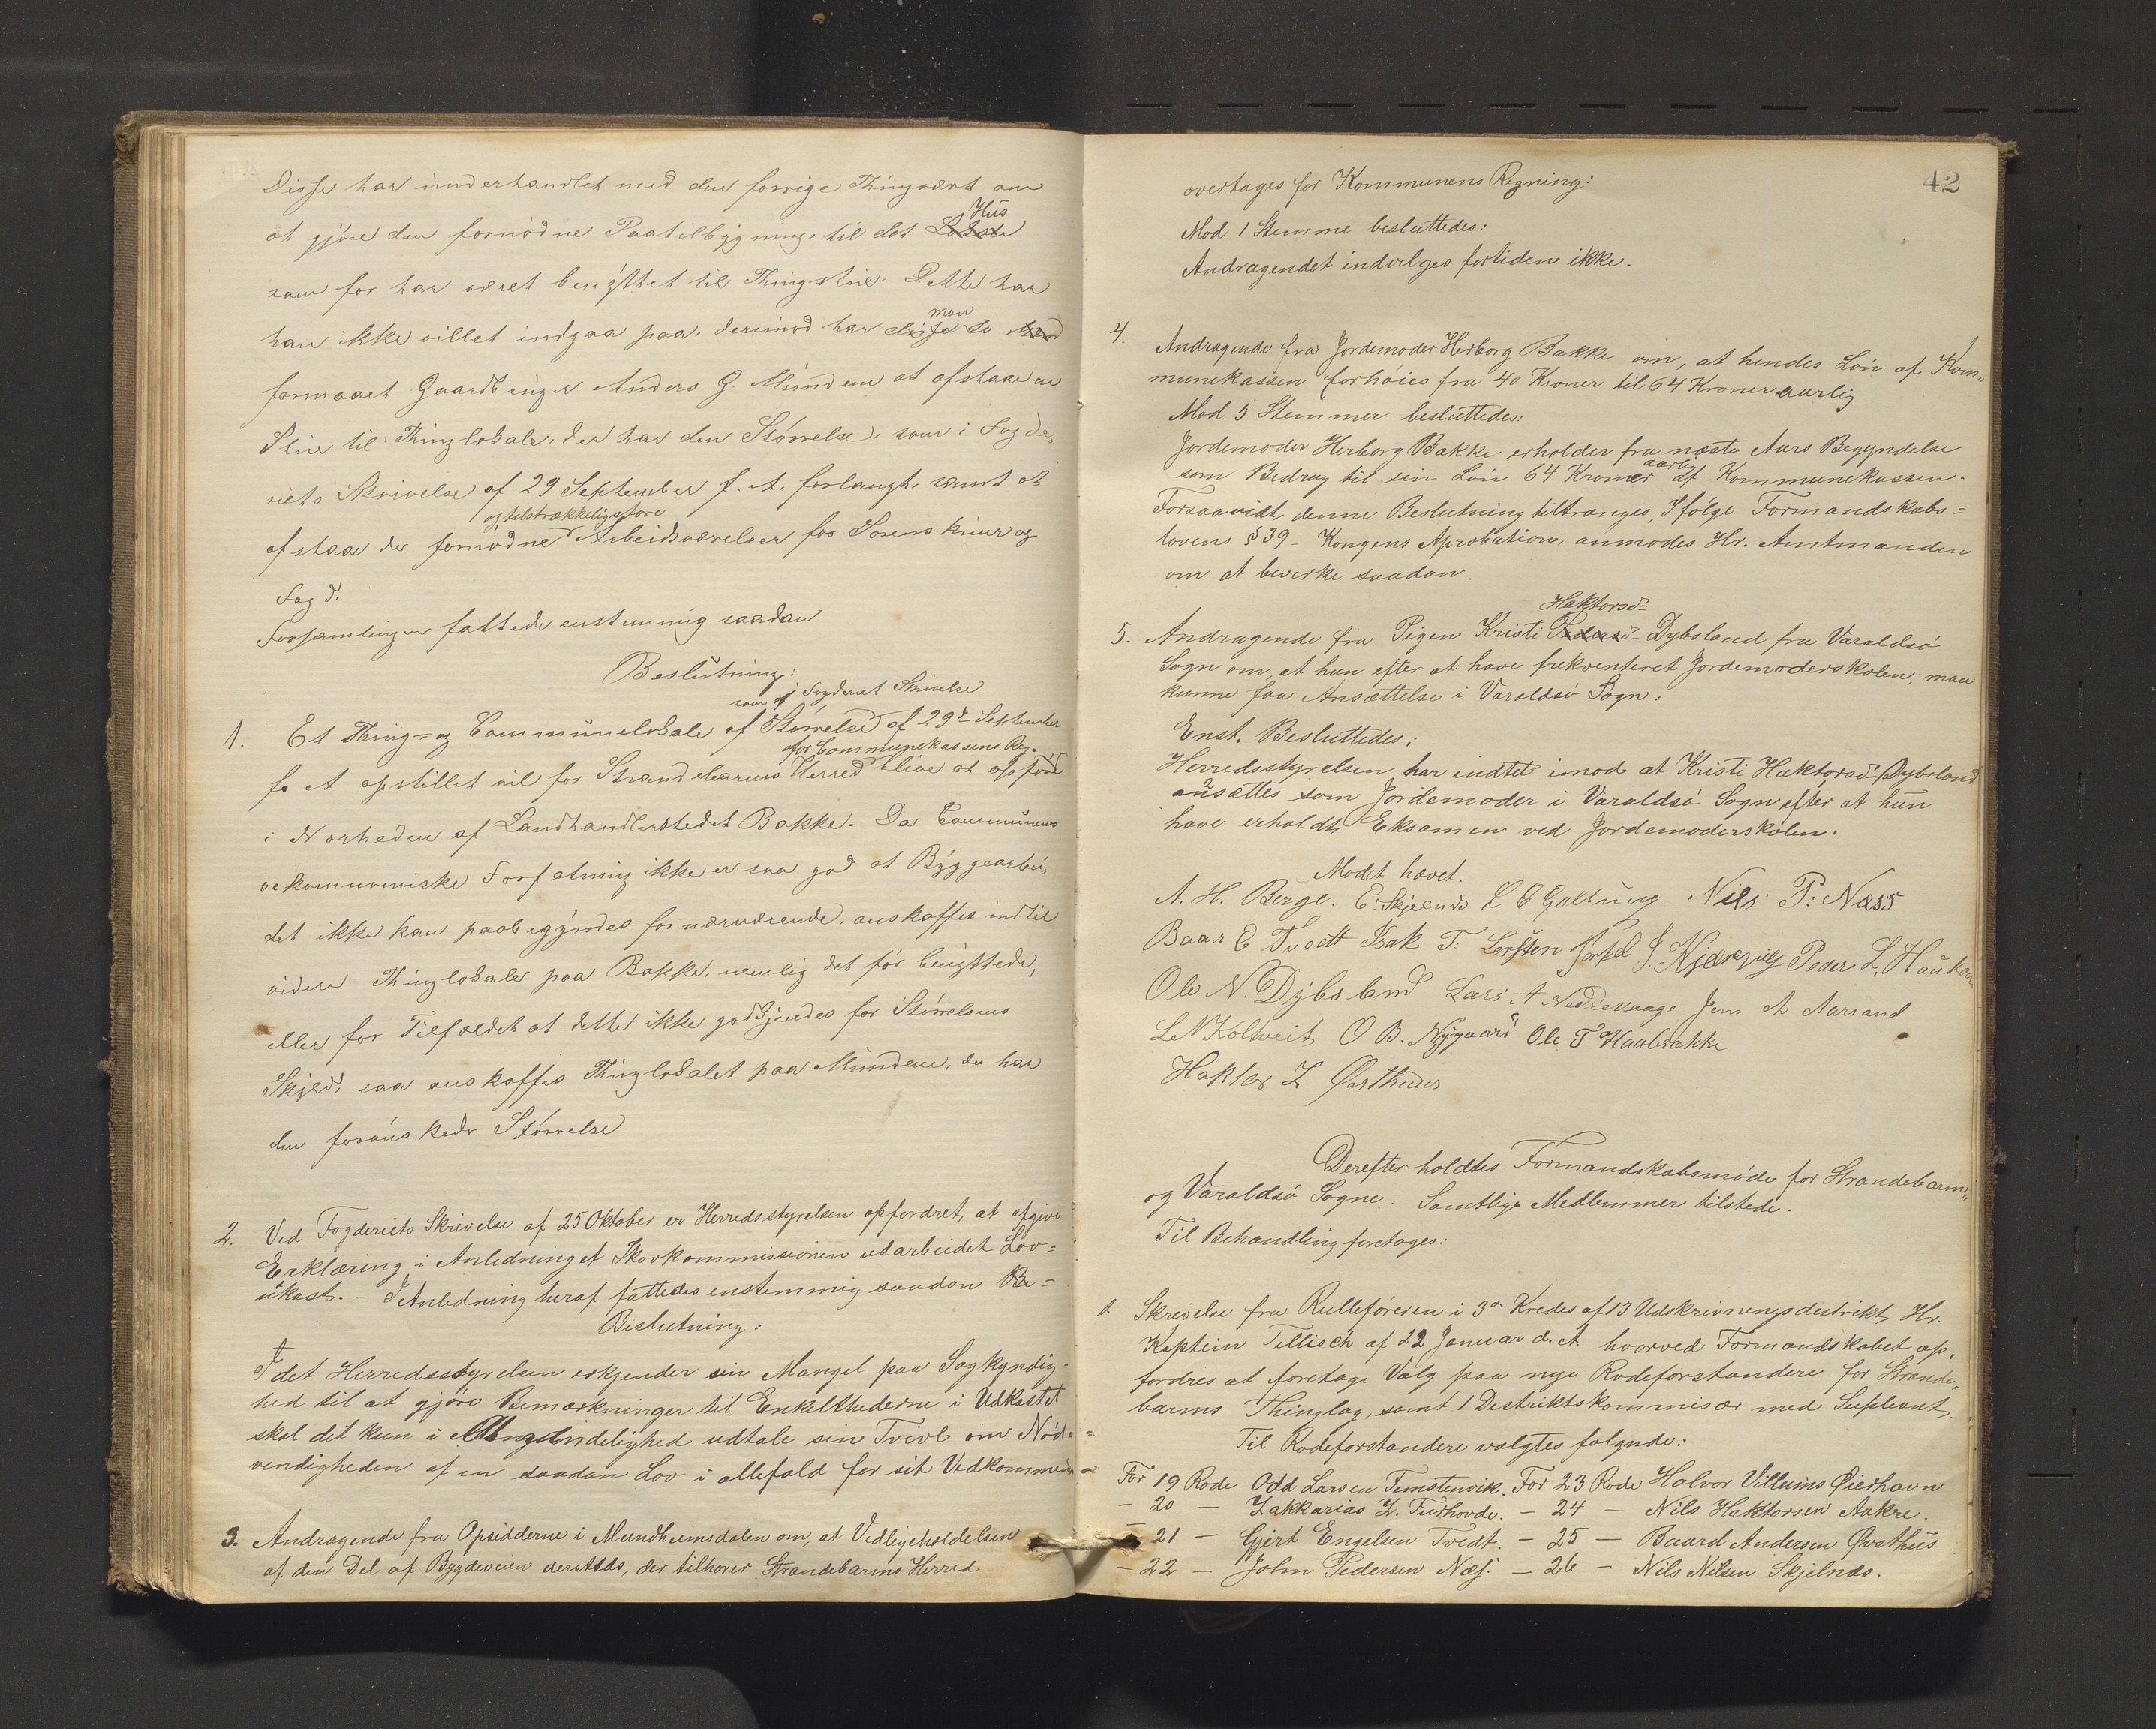 Disse har underhandlet med den forrige Thingvært om
at gjöre den fornödne Paatilbygning, til det Hus
som for har været benyttet til Thingstue. Dette har
han ikke villet indgaa paa, derimod har disse to man
formaaet Gaardbruger Anders G. Mundem at afstaa en
Stue til Thinglokale, der har den Störrelse, som i Fogde-
riets Skrivelse af 29 September f. A. forlangt, samt at
afstaa de fornödne og tilstrækkelig store Arbeidsværelser for Sorenskriver og
Fogd.
Forsamlingen fattede enstemmig saadan
Beslutning:
1. Et Thing- og Communelokale af Störrelse som i Fogderiet Skrivelse af 29de September
f. A opstillet vil for Strandebarms Herred for Communekassens Reg. blive at opföre
i Nærheden af Landhandlerstedet Bakke. Da Communens
oekonomiske Forfatning ikke er saa god at Byggearbei-
det ikke kan paabegyndes for nærværende, anskaffes indtil
videre Thinglokale paa Bakke, nemlig det för benyttede,
eller for Tilfældet at dette ikke godkjendes for Störrelsens
Skyld, saa anskaffes Thinglokalet paa Mundem, der har
den forönskede Störrelse
2. Ved Fogderiets Skrivelse af 25 Oktober er Herredsstyrelsen opfordret, at afgive
Erklæring i Anledning af Skovkommissionen udarbeidet Lov-
ukast. - I Anledning heraf fattedes enstemmig saadan Be-
Beslutning:
Idet Herredsstyrelsen erkjender sin Mangel paa Sagkyndig-
hed til at gjöre Bemærkninger til Enkelthederne i Udkastet
skal det kun i Almindelighed udtale sin Tvivl om Nöd-
vendigheden af en saadan Lov i allefald for sit Vedkommende
3. Andragende fra Opsidderne i Mundheimsdalen om, at Vedligeholdelsen
af den Del af Bygdeveien dersteds, der tilhorer Strandebarms Herred
42
overtages for Kommunens Regning:
Mod 1 Stemme besluttedes:
Andragendet indvilges fortiden ikke.
4. Andragende fra Jordemoder Herborg Bakke om, at hendes Lön af Kom-
munekassen forhöies fra 40 Kroner til 64 Kroner aarlig
Mod 5 Stemmer besluttedes:
Jordemoder Herborg Bakke erholder fra næste Aars Begyndelse
som Bidrag til sin Lön 64 Kroner aarlig af Kommunekassen.
Forsaavidt denne Beslutning tiltrænges, Ifölge Formandskabs-
lovens § 39 - Kongens Aprobation, anmodes Hr. Amtmanden
om at bevirke saadan.
5. Andragende fra Pigen Kristi Haktorsd- Dybsland fra Varaldsö
Sogn om, at hun efter at have frekventeret Jordemoderskolen, maa
kunne faa Ansættelse i Varaldsö Sogn.
Enst. Besluttedes:
Herredsstyrelsen har indtet imod at Kristi Haktorsd- Dybsland
ansættes som Jordemoder i Varaldsö Sogn efter at hun
have erholdt Eksamen ved Jordemoderskolen.
Modet hævet.
A. H. Berge. E. Skjelnes L E Galtung Nils P. Næss
Baar E Tvedt Isak T. J. Peder L. Haukaas
Ole N. Dybsland Lars A Nedrevaage Jens A Aarsand
L N Koltveit O B. Nygaard Ole T Haabrække
Haktor L Östhus
Derefter holdtes Formandskabsmöde for Strandebarm-
og Varaldsö Sogne. Samtlige Medlemmer tilstede.
Til Behandling foretages:
1. Skrivelse fra Rulleföreren i 3die Kredes af 13 Udskrivnings distrikt, Hr.
Kaptein Tillisch af 22 Januar d. A. hvorved Formandskabet op-
fordres at foretage Valg paa nye Rodeforstandere for Strande-
barms Thinglag, samt 1 Destriktskommisær med Supleant.
Til Rodeforstandere valgtes folgnde:
For 19 Rode Odd Larsen Femstenvik. For 23 Rode Halvor Villums Öierhavn
- 20 - Zakkarias Z. Tuehovde. - 24 - Nils Haktorsen Aakre.
- 21 - Gjert Engelsen Tvedt. - 25 - Baard Andersen Östhus
- 22 - John Pedersen Næs. - 26 - Nils Nilsen Skjelnæs.